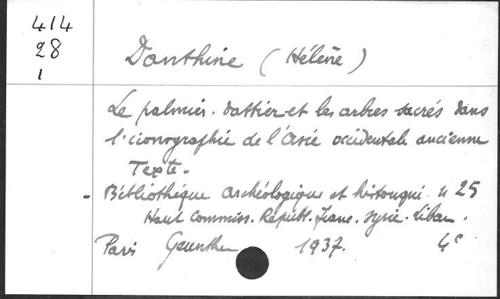 414
28
1
Danthine (Hélène)
Le palmier-dattier et les arbres sacrés dans
l'iconographie de l'Asie occidentale ancienne
Texte.
- Bibliothèque archéologique et historique. 25
Haut Commiss. Républ. Franc. Syrie. Liban.
Paris Geuthner 1937. 4°